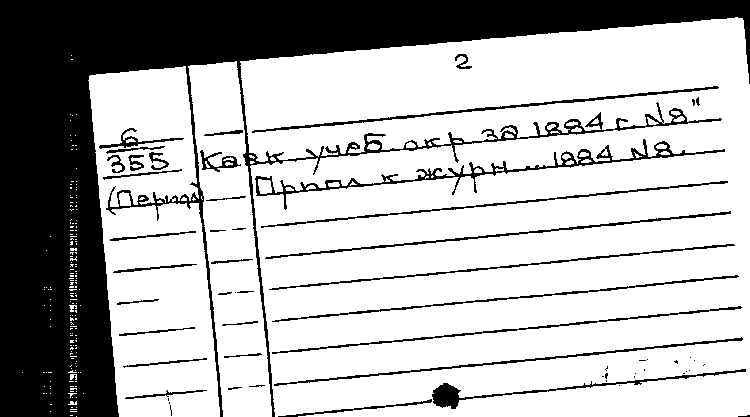 2
6
355 Кавк учеб. окр за 1884 г. N8"
(Период) Прилл к журн... 1884 N8.